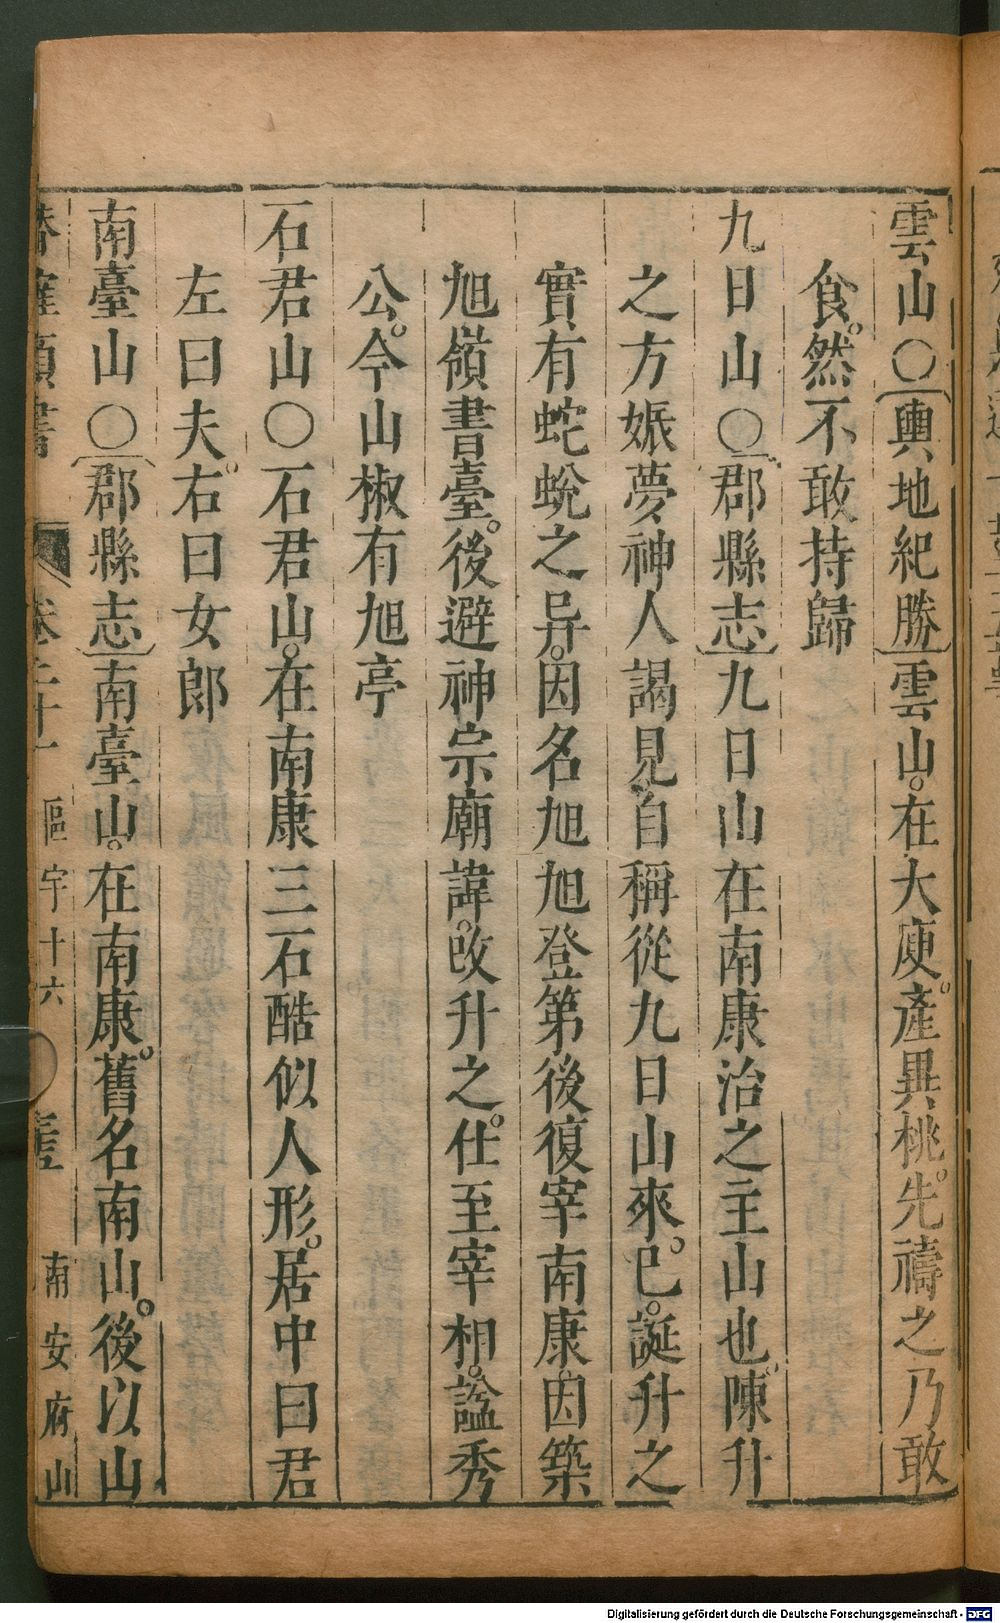 雲山○輿地紀勝雲山。在大庾。產異桃。先禱之乃敢
食。然不敢持歸
九日山○郡縣志九日山在南康治之主山也。陳升
之方娠夢神人謁見。自稱從九日山來。已。誕升之
實有蛇蛻之异。因名旭旭登第後復宰南康。因築
旭嶺書臺。後避神宗廟諱。改升之。仕至宰相。諡秀
公。今山椒有旭亭
石君山○石君山。在南康三石酷似人形。居中曰君
左曰夫。右曰女郎
南臺山○郡縣志南臺山。在南康。舊名南山。後以山
卷二十一 區宇十六 南安府山
Digitalisierung gefördert durch die Deutsche Forschungsgemeinschaft - DFG